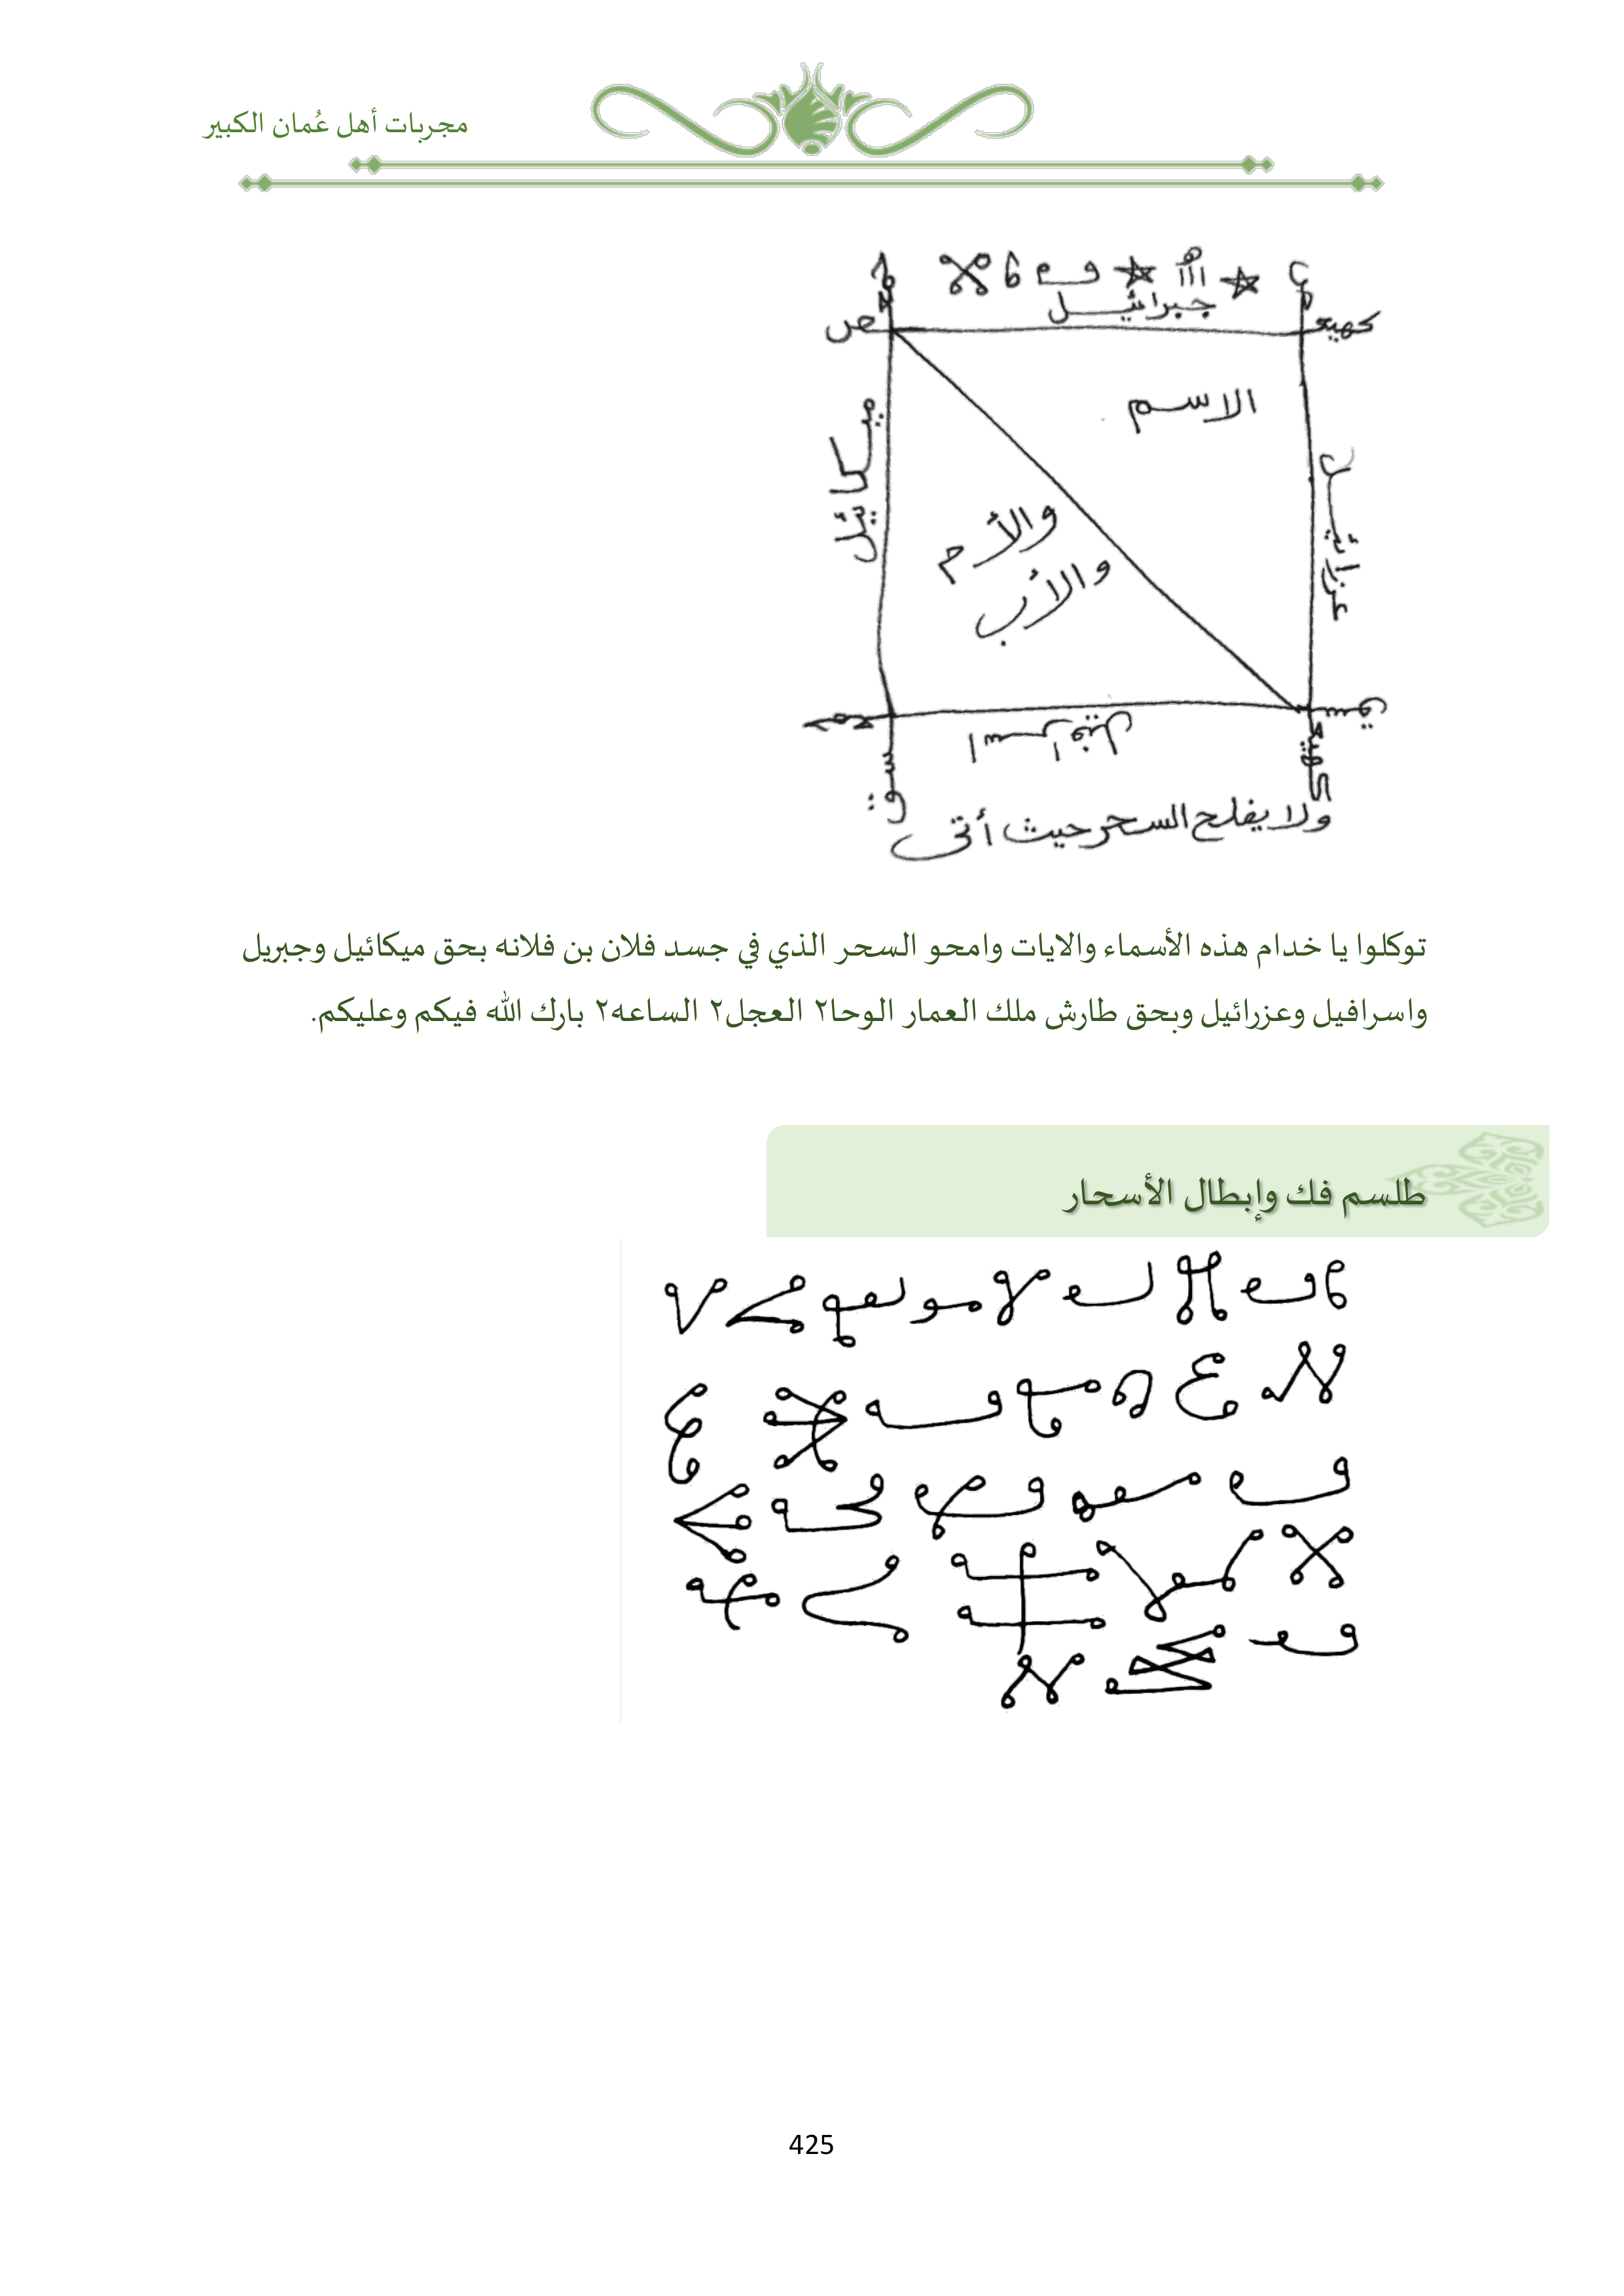 مجربات أهل عُمان الكبير
جبرائيل
كهيع
ص
الاسم
ميكائيل
عزرائيل
والأم
والأب
اسرافيل
كهيع
ولا يفلح السحر حيث أتى
توكلوا يا خدام هذه الأسماء والايات وامحو السحر الذي في جسد فلان بن فلانه بحق ميكائيل وجبريل
واسرافيل وعزرائيل وبحق طارش ملك العمار الوحا٢ العجل٢ الساعه٢ بارك الله فيكم وعليكم.
طلسم فك وإبطال الأسحار
425